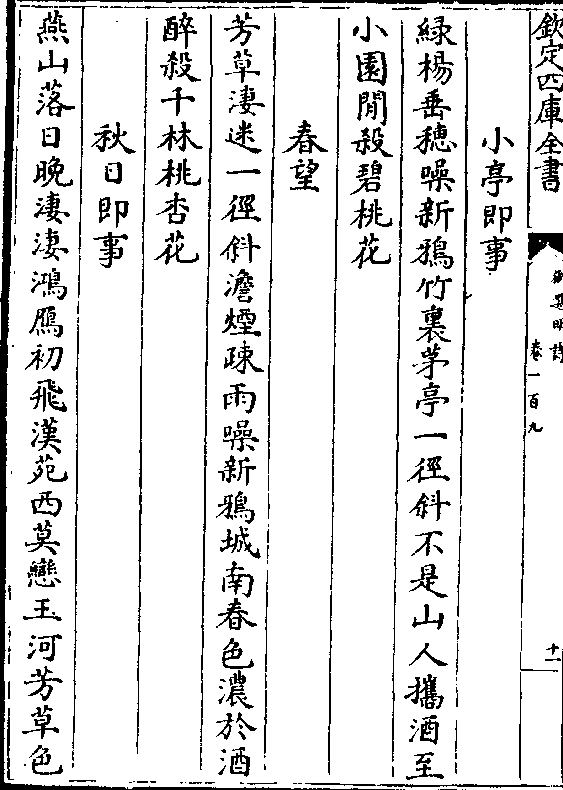 欽定四庫全書
御選明詩
卷一百九
十一
小亭即事
綠楊垂穗噪新鴉竹裏茅亭一徑斜不是山人攜酒至
小園閒殺碧桃花
春望
芳草淒迷一徑斜澹煙疎雨噪新鴉城南春色濃於酒
醉殺千林桃杏花
秋日即事
燕山落日晚淒淒鴻鴈初飛漢苑西莫戀玉河芳草色